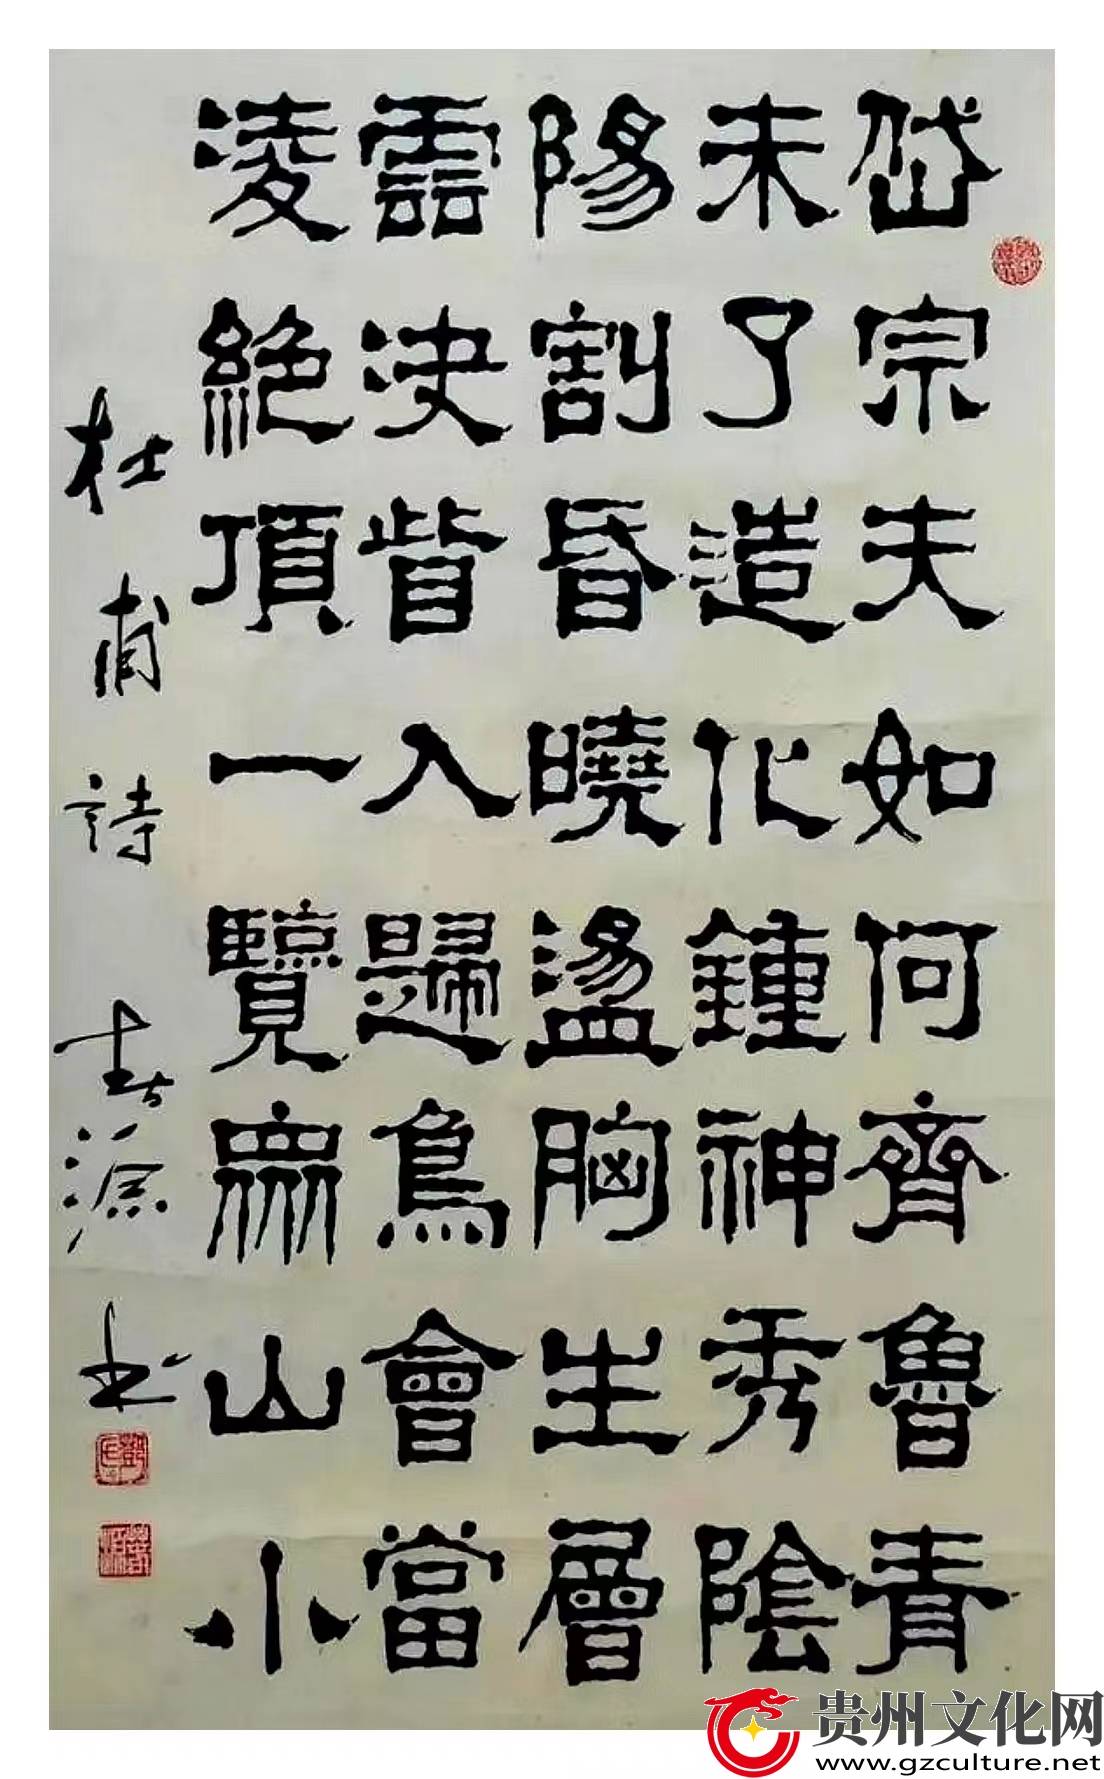 岱宗夫如何齊魯青
未了造化鍾神秀陰
陽割昏曉盪胸生層
雲决眥入歸鳥會當
凌絕頂一覽眾山小
杜甫詩 春源书
贵州文化网
www.gzculture.net